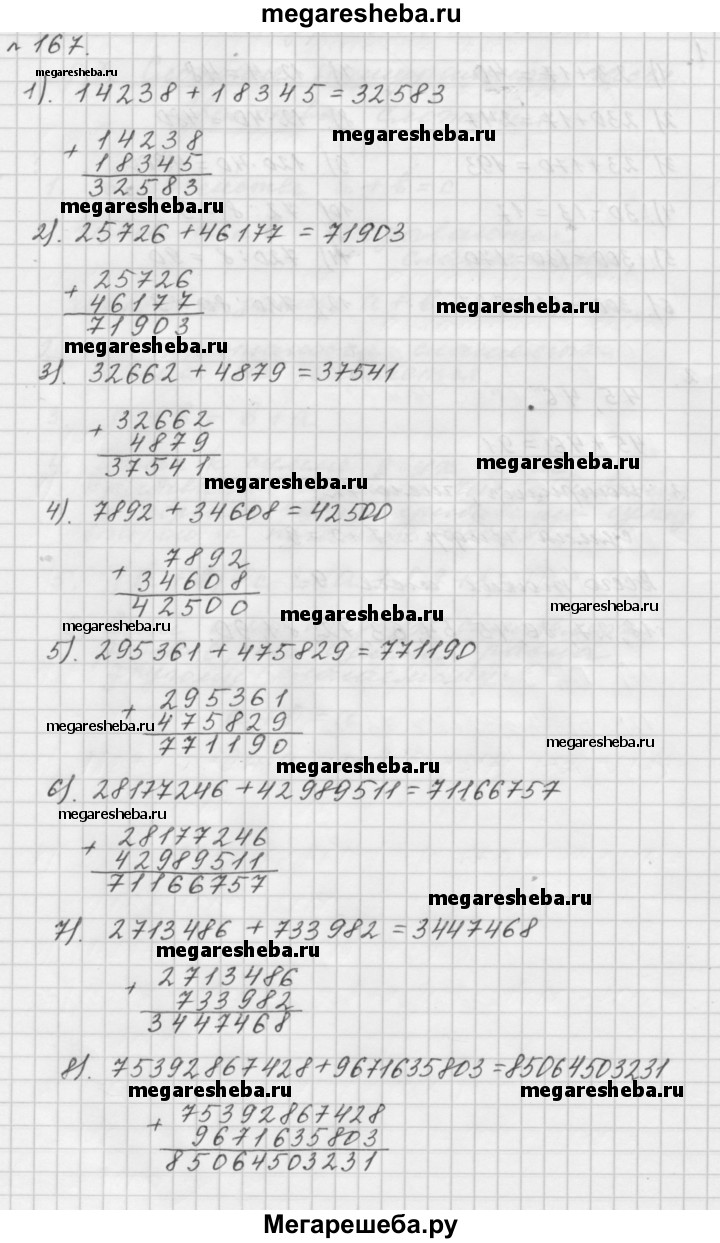 megaresheba.ru
№ 167.
megaresheba.ru
1). 14238 + 18345 = 32583
megaresheba.ru
+ 14238
18345
32583
megaresheba.ru
2). 25726 + 46177 = 71903
+ 25726
46177
71903
megaresheba.ru
megaresheba.ru
3). 32662 + 4879 = 37541
+ 32662
4879
37541
megaresheba.ru
megaresheba.ru
4). 7892 + 34608 = 42500
+ 7892
34608
42500
megaresheba.ru
megaresheba.ru
megaresheba.ru
5). 295361 + 475829 = 771190
+ 295361
475829
771190
megaresheba.ru
megaresheba.ru
megaresheba.ru
6). 28177246 + 42989511 = 71166757
megaresheba.ru
+ 28177246
42989511
71166757
megaresheba.ru
7). 2713486 + 733982 = 3447468
megaresheba.ru
+ 2713486
733982
3447468
8). 75392867428 + 9671635803 = 85064503231
megaresheba.ru
megaresheba.ru
+ 75392867428
9671635803
85064503231
Мегарешеба.ру